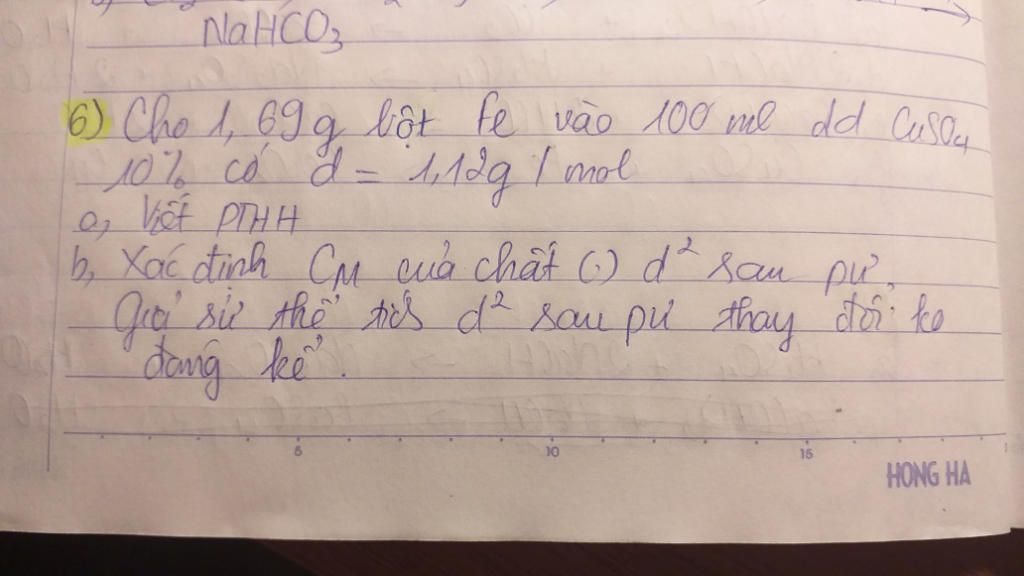 NaHCO3
6) Cho 1,69g bột Fe vào 100 ml dd CuSO4
10% có d = 1,12g / mol
a, Viết PTHH
b, Xác định CM của chất (.) d² sau pư,
Giả sử thể tích d² sau pư thay đổi ko
đáng kể.
5 10 15
HONG HA